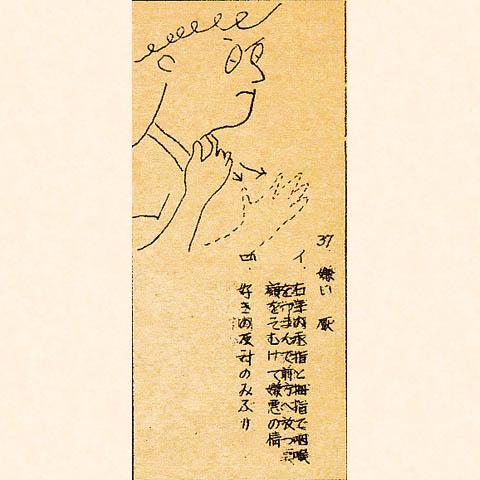 37. 嫌い 厭
イ. 右掌の示指と拇指で咽喉
をつまんで前方へ放つ
顔をそむけて嫌悪の情
ロ. 好きの反対のみぶり